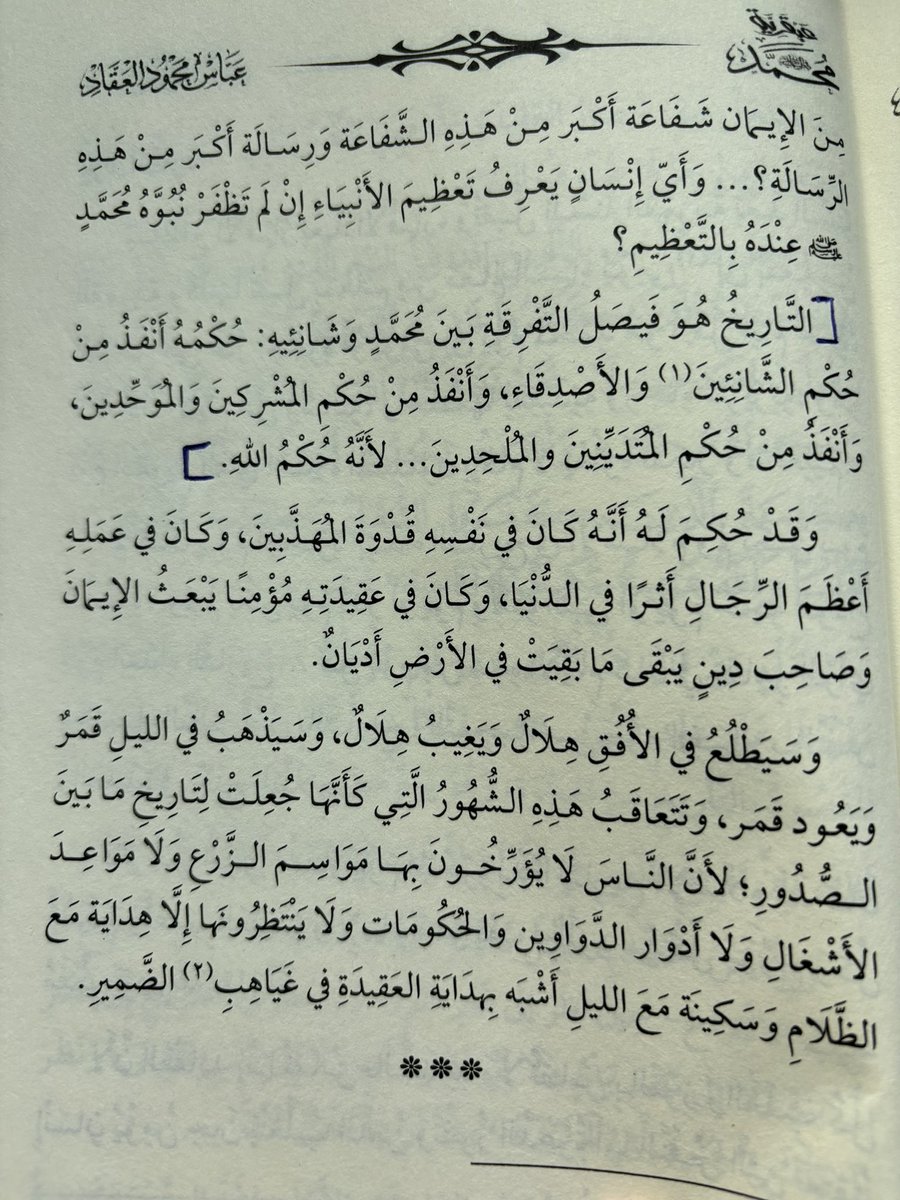 عبقرية محمد ﷺ
عَبَّاس مَحْمُود العَقَّاد
مِنَ الإِيمَان شَفَاعَة أَكْبَر مِنْ هَذِهِ الشَّفَاعَة وَرِسَالَة أَكْبَر مِنْ هَذِهِ
الرِّسَالَةِ؟... وَأَيّ إِنْسَانٍ يَعْرِفُ تَعْظِيمَ الأَنْبِيَاءِ إِنْ لَم تَظْفَرْ نُبُوَّهُ مُحَمَّدٍ
ﷺ عِنْدَهُ بِالتَّعْظِيمِ؟
[التَّارِيخُ هُوَ فَيصَلُ التَّفْرِقَةِ بَينَ مُحَمَّدٍ وَشَانِئِيهِ: حُكْمُهُ أَنْفَذُ مِنْ
حُكْمِ الشَّانِئِينَ(١) وَالأَصْدِقَاءِ، وَأَنْفَذُ مِنْ حُكْمِ المُشْرِكِينَ وَالمُوَحِّدِينَ،
وَأَنْفَذُ مِنْ حُكْمِ المُتَدَيِّنِينَ والمُلْحِدِينَ... لأَنَّهُ حُكْمُ اللهِ.]
وَقَدْ حُكِمَ لَهُ أَنَّهُ كَانَ في نَفْسِهِ قُدْوَةَ المُهَذَّبِينَ، وَكَانَ في عَمَلِهِ
أَعْظَمَ الرِّجَالِ أَثرًا في الدُّنْيَا، وَكَانَ في عَقِيدَتِهِ مُؤْمِنًا يَبْعَثُ الإِيمَانَ
وَصَاحِبَ دِينٍ يَبْقَى مَا بَقِيَتْ في الأَرْضِ أَدْيَانٌ.
وَسَيَطْلُعُ في الأُفُقِ هِلَالٌ وَيَغِيبُ هِلَالٌ، وَسَيَذْهَبُ في الليلِ قَمَرٌ
وَيَعُود قَمَر، وَتَتَعَاقَبُ هَذِهِ الشُّهُورُ الَّتِي كَأَنَّهَا جُعِلَتْ لِتَارِيخِ مَا بَينَ
الصُّدُورِ؛ لأَنَّ النَّاسَ لَا يُؤَرِّخُونَ بِهَا مَوَاسِمَ الزَّرْعِ وَلَا مَوَاعِدَ
الأَشْغَالِ وَلَا أَدْوَار الدَّوَاوِين وَالحُكُومَات وَلَا يَنْتَظِرُونَها إِلَّا هِدَايَة مَعَ
الظَّلَامِ وَسَكِينَة مَعَ الليلِ أَشْبَه بِهِدَايَةِ العَقِيدَةِ في غَيَاهِبِ(٢) الضَّمِيرِ.
***